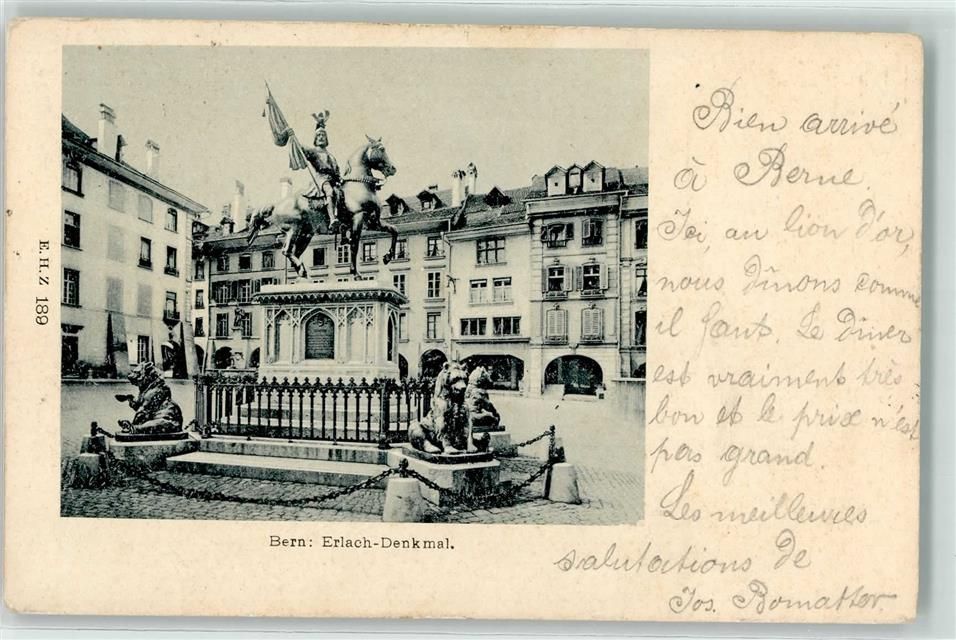 E.H.Z 189
Bien arrivé
à Berne.
Ici, au lion d'or,
nous dînons comme
il faut. Le dîner
est vraiment très
bon et le prix n'est
pas grand.
Les meilleures
salutations de
Jos. Bomatter.
Bern: Erlach-Denkmal.